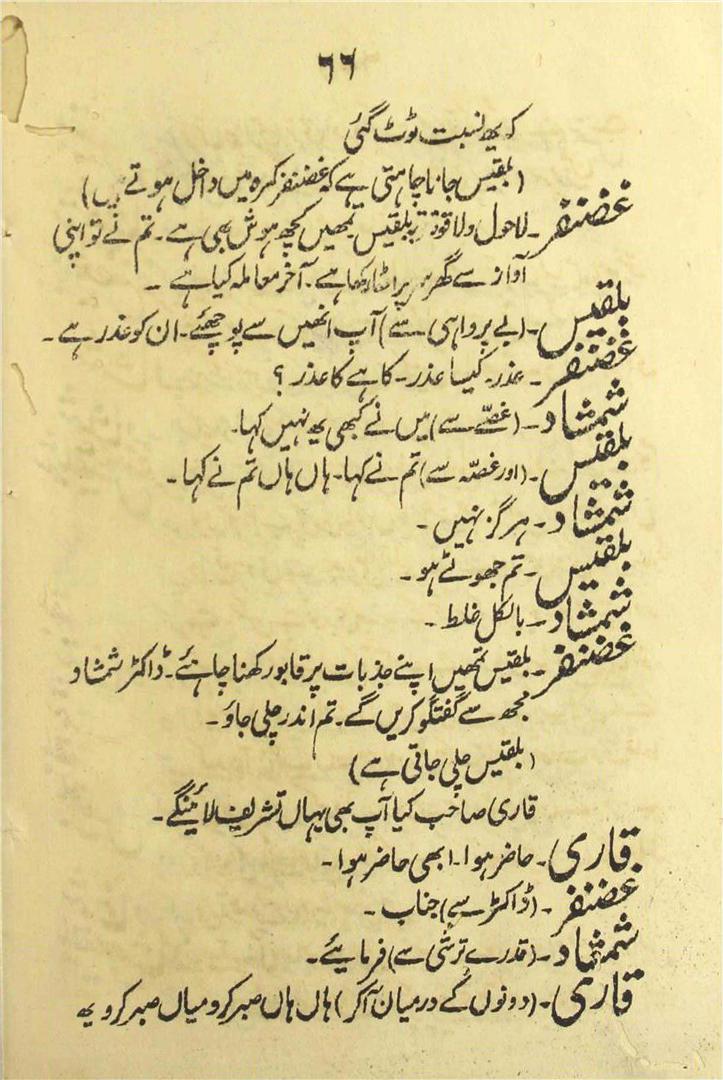 ۶۶
کہ یہ نسبت ٹوٹ گئی
(بلقیس جانا چاہتی ہے کہ غضنفر کمرہ میں داخل ہوتے ہیں)
غضنفر۔ لاحول ولا قوۃ بلقیس تمھیں کچھ ہوش بھی ہے۔ تم نے تو اپنی
آواز سے گھر سر پر اٹھا رکھا ہے۔ آخر معاملہ کیا ہے ۔
بلقیس۔ (بے پرواہی سے) آپ انھیں سے پوچھئے۔ ان کو عذر ہے۔
غضنفر۔ عذر۔ کیسا عذر۔ کاہے کا عذر ؟
شمشاد۔ (غصّے سے) میں نے کبھی یہ نہیں کہا۔
بلقیس۔ (اور غصّہ سے) تم نے کہا۔ ہاں ہاں تم نے کہا۔
شمشاد۔ ہرگز نہیں۔
بلقیس۔ تم جھوٹے ہو۔
شمشاد۔ بالکل غلط۔
غضنفر۔ بلقیس تمھیں اپنے جذبات پر قابو رکھنا چاہئے۔ ڈاکٹر شمشاد
مجھ سے گفتگو کریں گے۔ تم اندر چلی جاؤ۔
(بلقیس چلی جاتی ہے)
قاری صاحب کیا آپ بھی یہاں تشریف لائینگے۔
قاری۔ حاضر ہوا۔ ابھی حاضر ہوا۔
غضنفر۔ (ڈاکٹر سے) جناب۔
شمشاد۔ (قدرے ترشی سے) فرمایئے۔
قاری۔ (دونوں کے درمیان آکر) ہاں ہاں صبر کرو میاں صبر کرو یہ